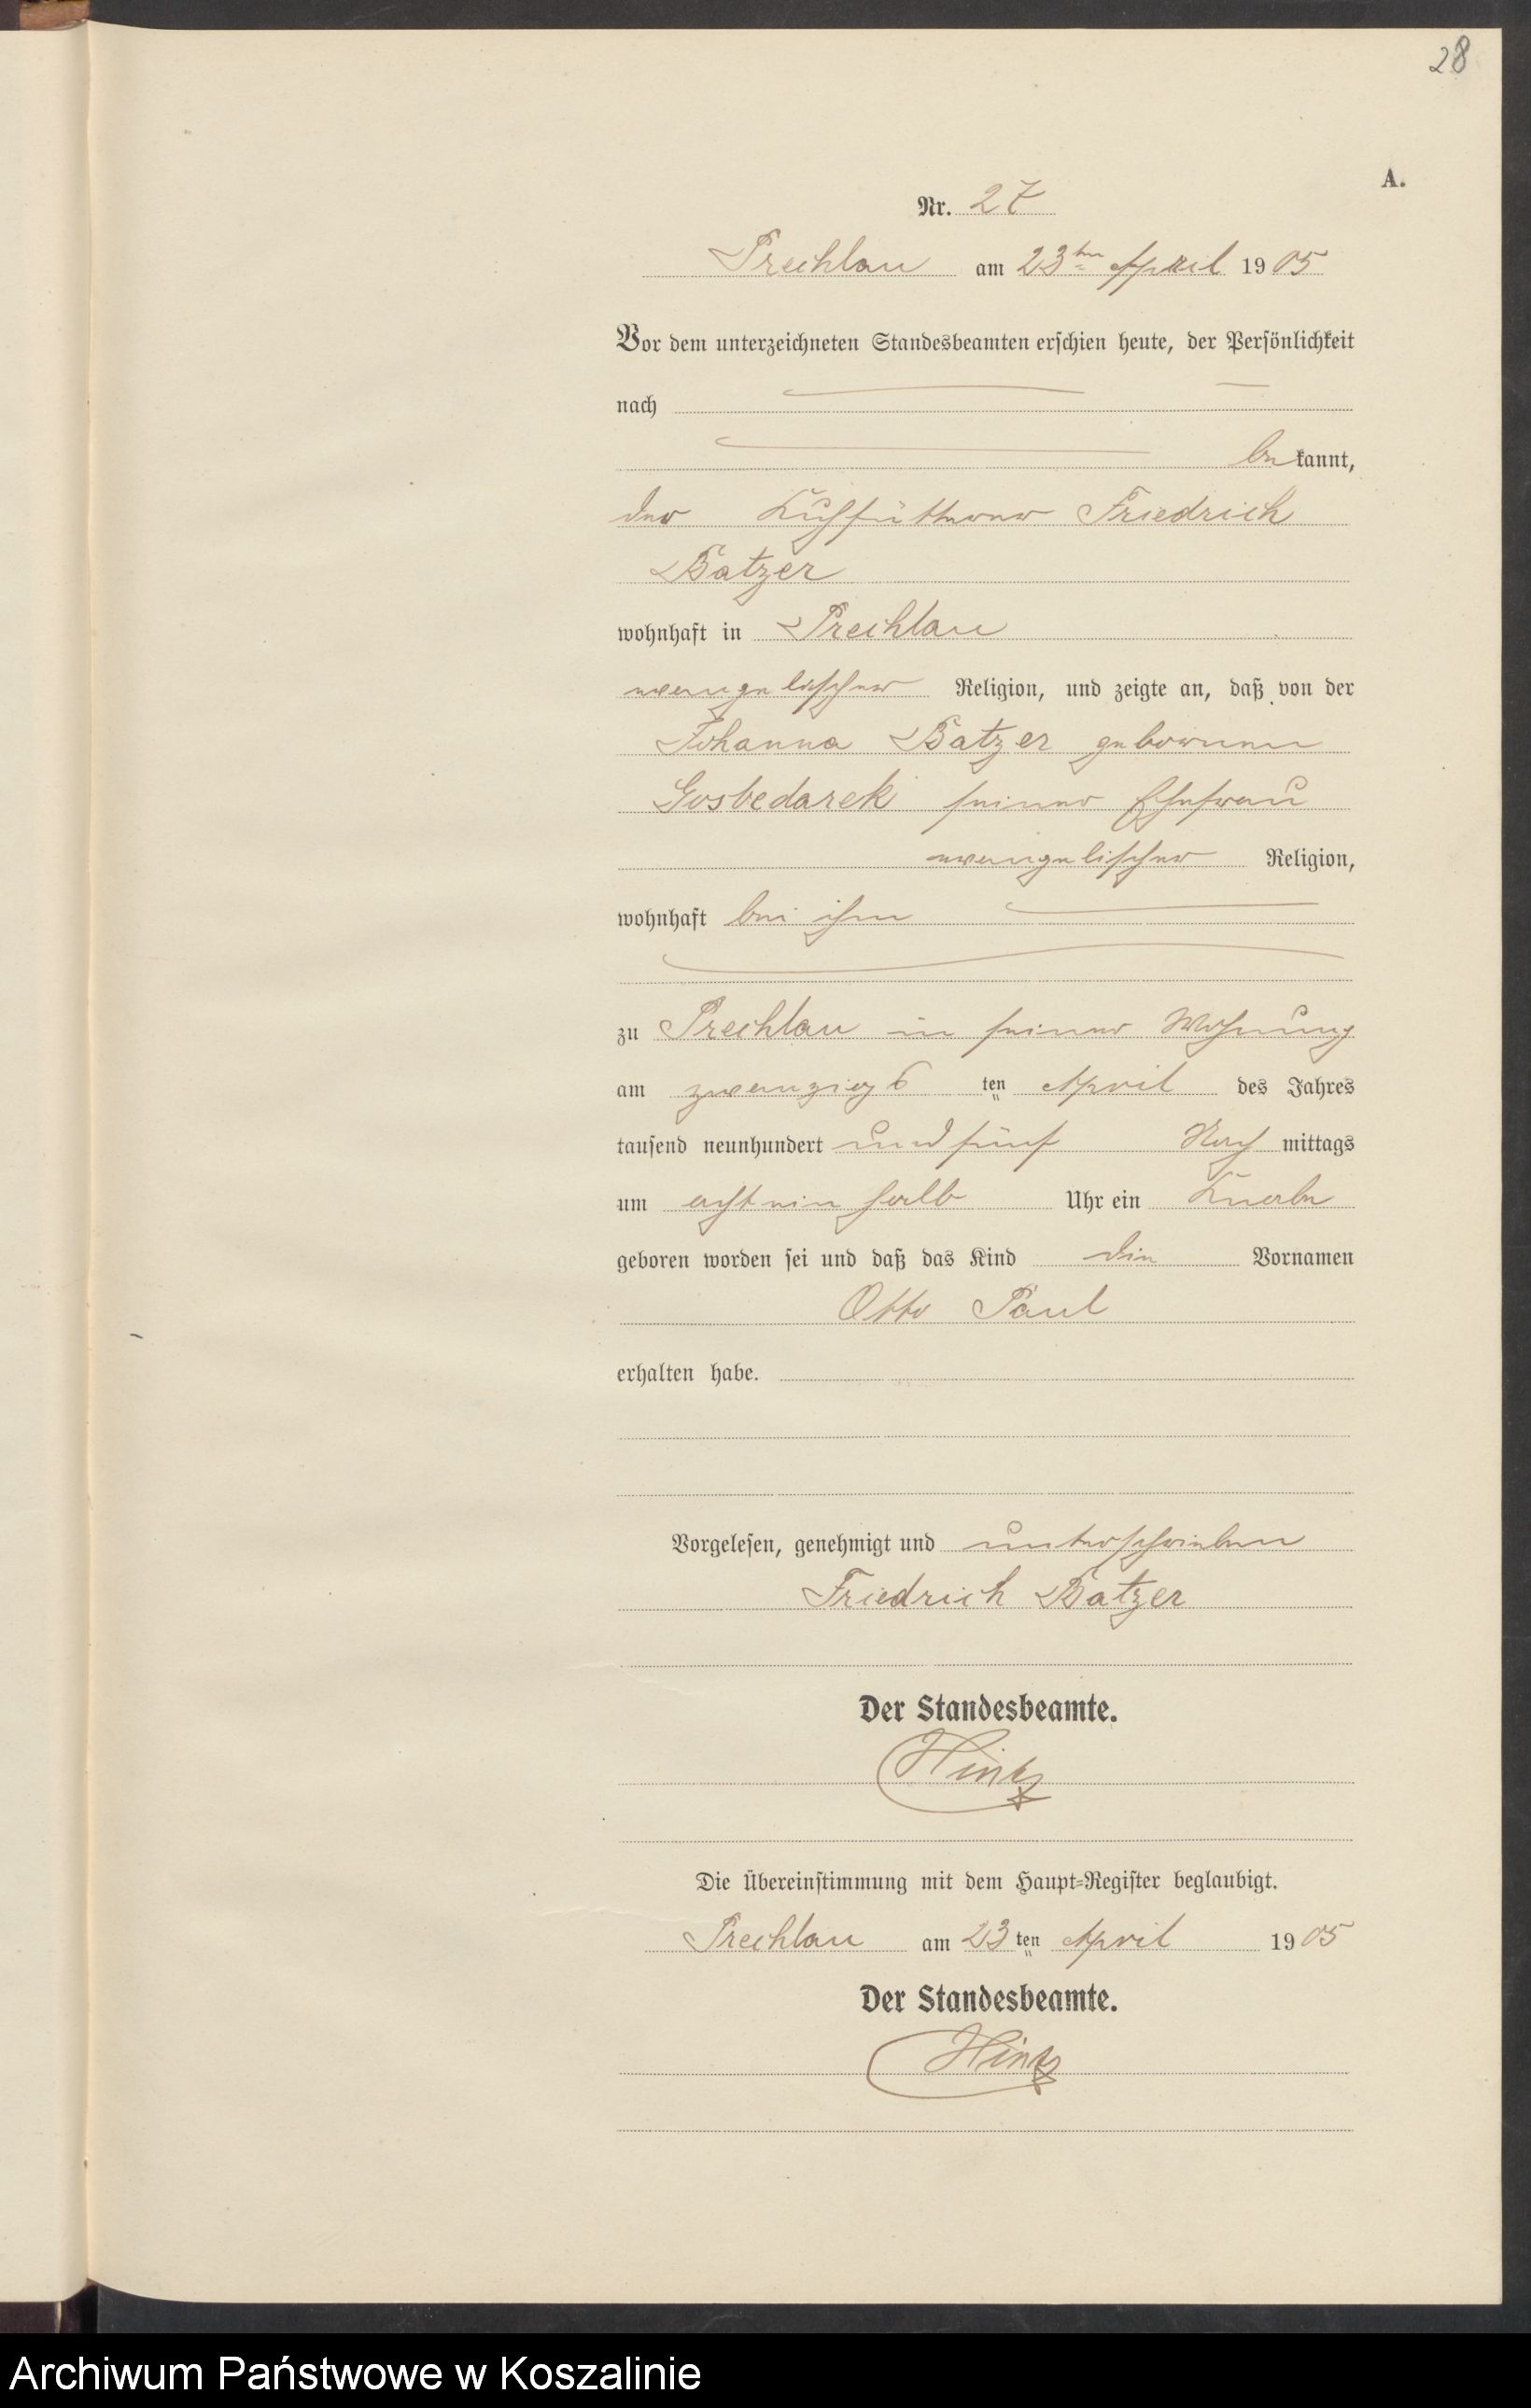 28
A.
Nr. 27
Prechlau am 23ten April 1905
Vor dem unterzeichneten Standesbeamten erschien heute, der Persönlichkeit
nach
bekannt,
der Kuhfütterer Friedrich
Batzer
wohnhaft in Prechlau
evangelischer Religion, und zeigte an, daß von der
Johanna Batzer geborenen
Gosbedarek seiner Ehefrau
evangelischer Religion,
wohnhaft bei ihm
zu Prechlau in seiner Wohnung
am zwanzigs ten April des Jahres
tausend neunhundert und fünf Nach mittags
um acht ein halb Uhr ein Knabe
geboren worden sei und daß das Kind die Vornamen
Otto Paul
erhalten habe.
Vorgelesen, genehmigt und unterschrieben
Friedrich Batzer
Der Standesbeamte.
Hintz
Die Übereinstimmung mit dem Haupt-Register beglaubigt.
Prechlau am 23 ten April 1905
Der Standesbeamte.
Hintz
Archiwum Państwowe w Koszalinie